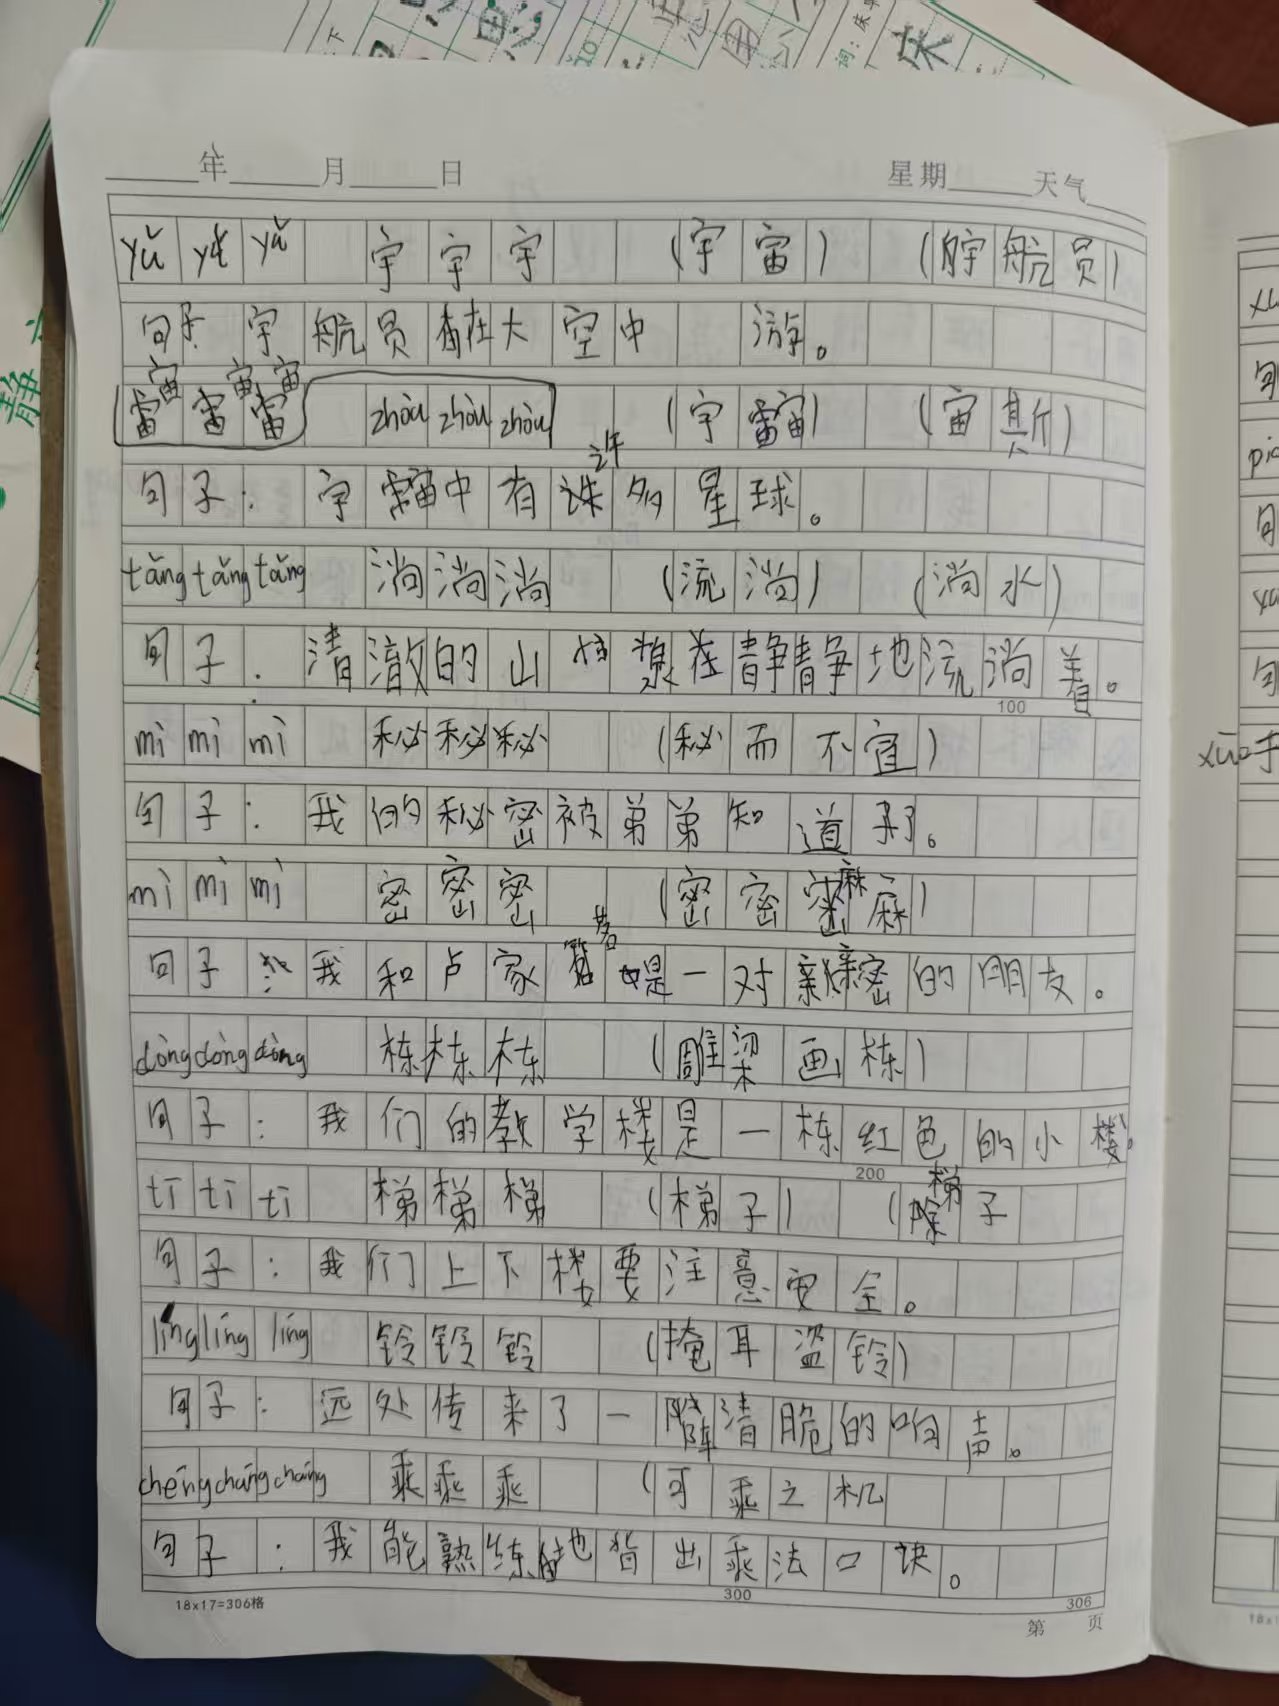 年 月 日 星期 天气
yǔ yǔ yǔ 宇宇宇 (宇宙) (宇航员)
句子: 宇航员在太空中 游。
宙宙宙
宙宙宙 zhòu zhòu zhòu (宇宙) (宙斯)
许
句子: 宇宙中有许多星球。
tǎng tǎng tǎng 淌淌淌 (流淌) (淌水)
句子: 清澈的山 泉在静静地流淌着。
100
mì mì mì 秘秘秘 (秘而不宣)
句子: 我的秘密被弟弟知道了。
mì mì mì 密密密 (密密麻麻)
句子: 我和卢家茗是一对亲密的朋友。
dòng dòng dòng 栋栋栋 (雕梁画栋)
句子: 我们的教学楼是一栋红色的小楼。
200
tī tī tī 梯梯梯 (梯子) (梯子
句子: 我们上下楼要注意安全。
líng líng líng 铃铃铃 (掩耳盗铃)
句子: 远处传来了一阵清脆的响声。
chéng chéng chéng 乘乘乘 (可乘之机
句子: 我能熟练地背出乘法口诀。
18x17=306格 300 306
第 页